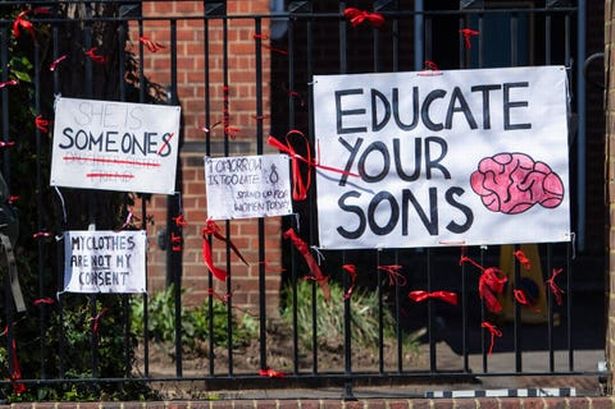 SHE IS
SOMEONE
DAUGHTER SISTER
FRIEND
TOMORROW
IS TOO LATE
STAND UP FOR
WOMEN TODAY
MY CLOTHES
ARE NOT MY
CONSENT
EDUCATE
YOUR
SONS